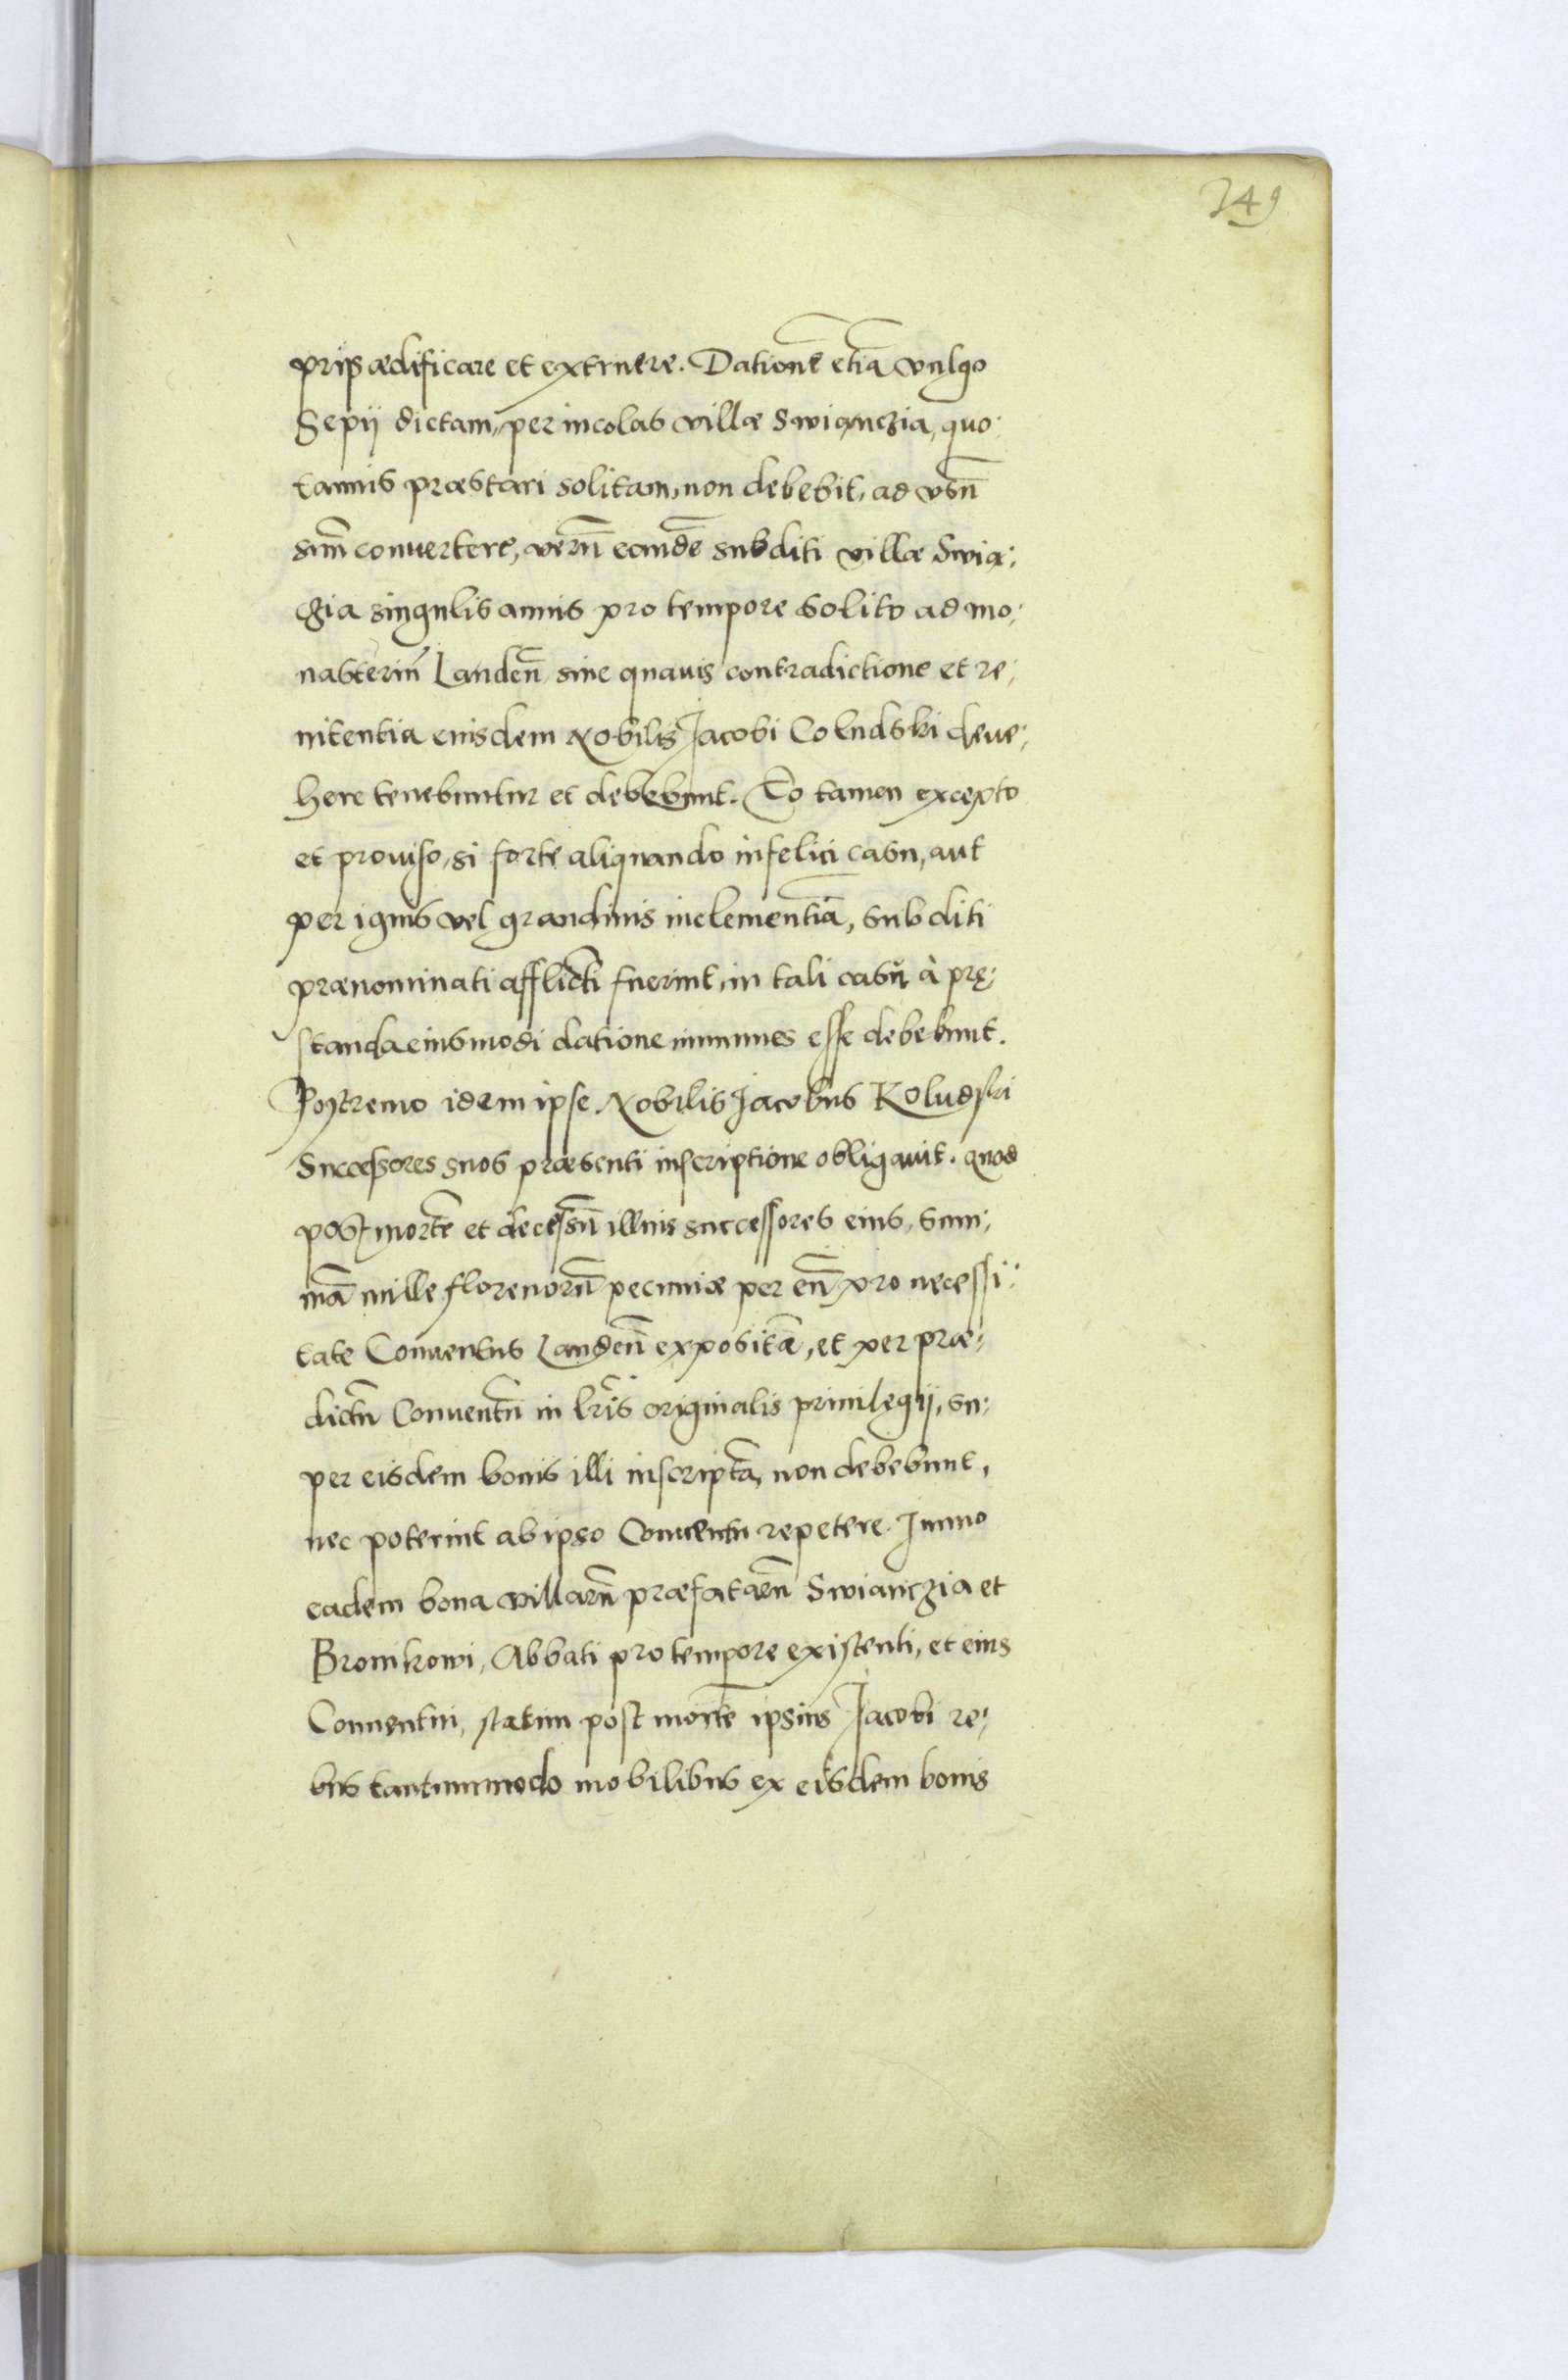 349
prijs ædificare et extruere. Datione͂ etia͂ vulgo
Sepij dictam, per incolas villæ Swiąnczia, quo:
tannis præstari solitam, non debebit, ad vsu͂
suu͂ conuertere, veru͂ eande͂ subditi villæ Swią:
czia singulis annis pro tempore solito ad mo:
nasteriu͂ Landen͂ sine quauis contradictione et re:
nitentia eiusdem Nobilis Jacobi Coludski deue:
here tenebuntur et debebunt. Eo tamen excepto
et prouiso, si forte aliquando infelici casu, aut
per ignis vel grandinis inclementia͂, subditi
prænominati afflicti fuerint, in tali casu à prę:
standa eiusmodi datione immunes esse debebunt.
Postremo idem ipse Nobilis Jacobus Koludski
Successores suos præsenti inscriptione obligauit. quod
post morte͂ et decessu͂ illius successores eius, sum:
ma͂ mille florenoru͂ pecuniæ per eu͂ pro necessi:
tate Conuentus Landen͂ exposita͂, et per præ:
dictu͂ Conuentu͂ in lr͂is originalis priuilegij, su:
per eisdem bonis illi inscripta͂, non debebunt,
nec poterint ab ipso Conuentu repetere. Immo
eadem bona villaru͂ præfataru͂ Swianczia et
Bronikowi, Abbati pro tempore existenti, et eius
Conuentui, statim post morte͂ ipsius Jacobi re:
bus tantummodo mobilibus ex eisdem bonis